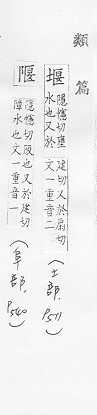 類篇
堰 隱幰切壅水也又於建切又於扇切文一重音二 (土部. P511)
隁 隱幰切阪也又於建切障水也文一重音一 (阜部. P540)